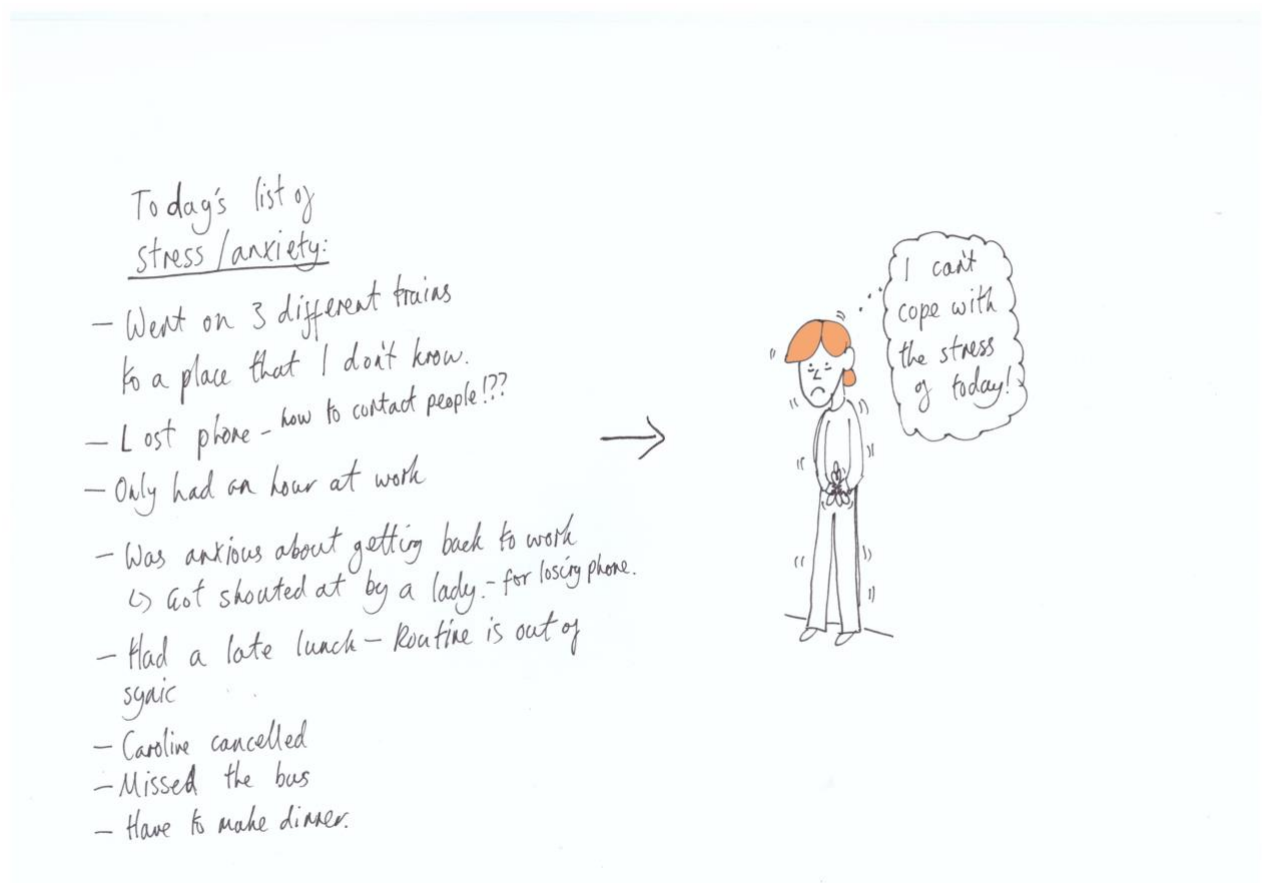 Today's list of
stress/anxiety:
- Went on 3 different trains
to a place that I don't know.
- Lost phone - how to contact people!??
- Only had an hour at work
- Was anxious about getting back to work
↳ Got shouted at by a lady. - for losing phone.
- Had a late lunch - Routine is out of
synic
- Caroline cancelled
- Missed the bus
- Have to make dinner.
I can't
cope with
the stress
of today!